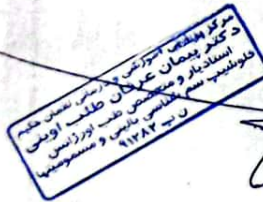 مرکز پزشکی آموزشی و درمانی لقمان حکیم
دکتر پیمان عرفان طلب اوینی
استادیار و متخصص طب اورژانس
فلوشیپ سم شناسی بالینی و مسمومیتها
ن پ ۹۱۲۸۲